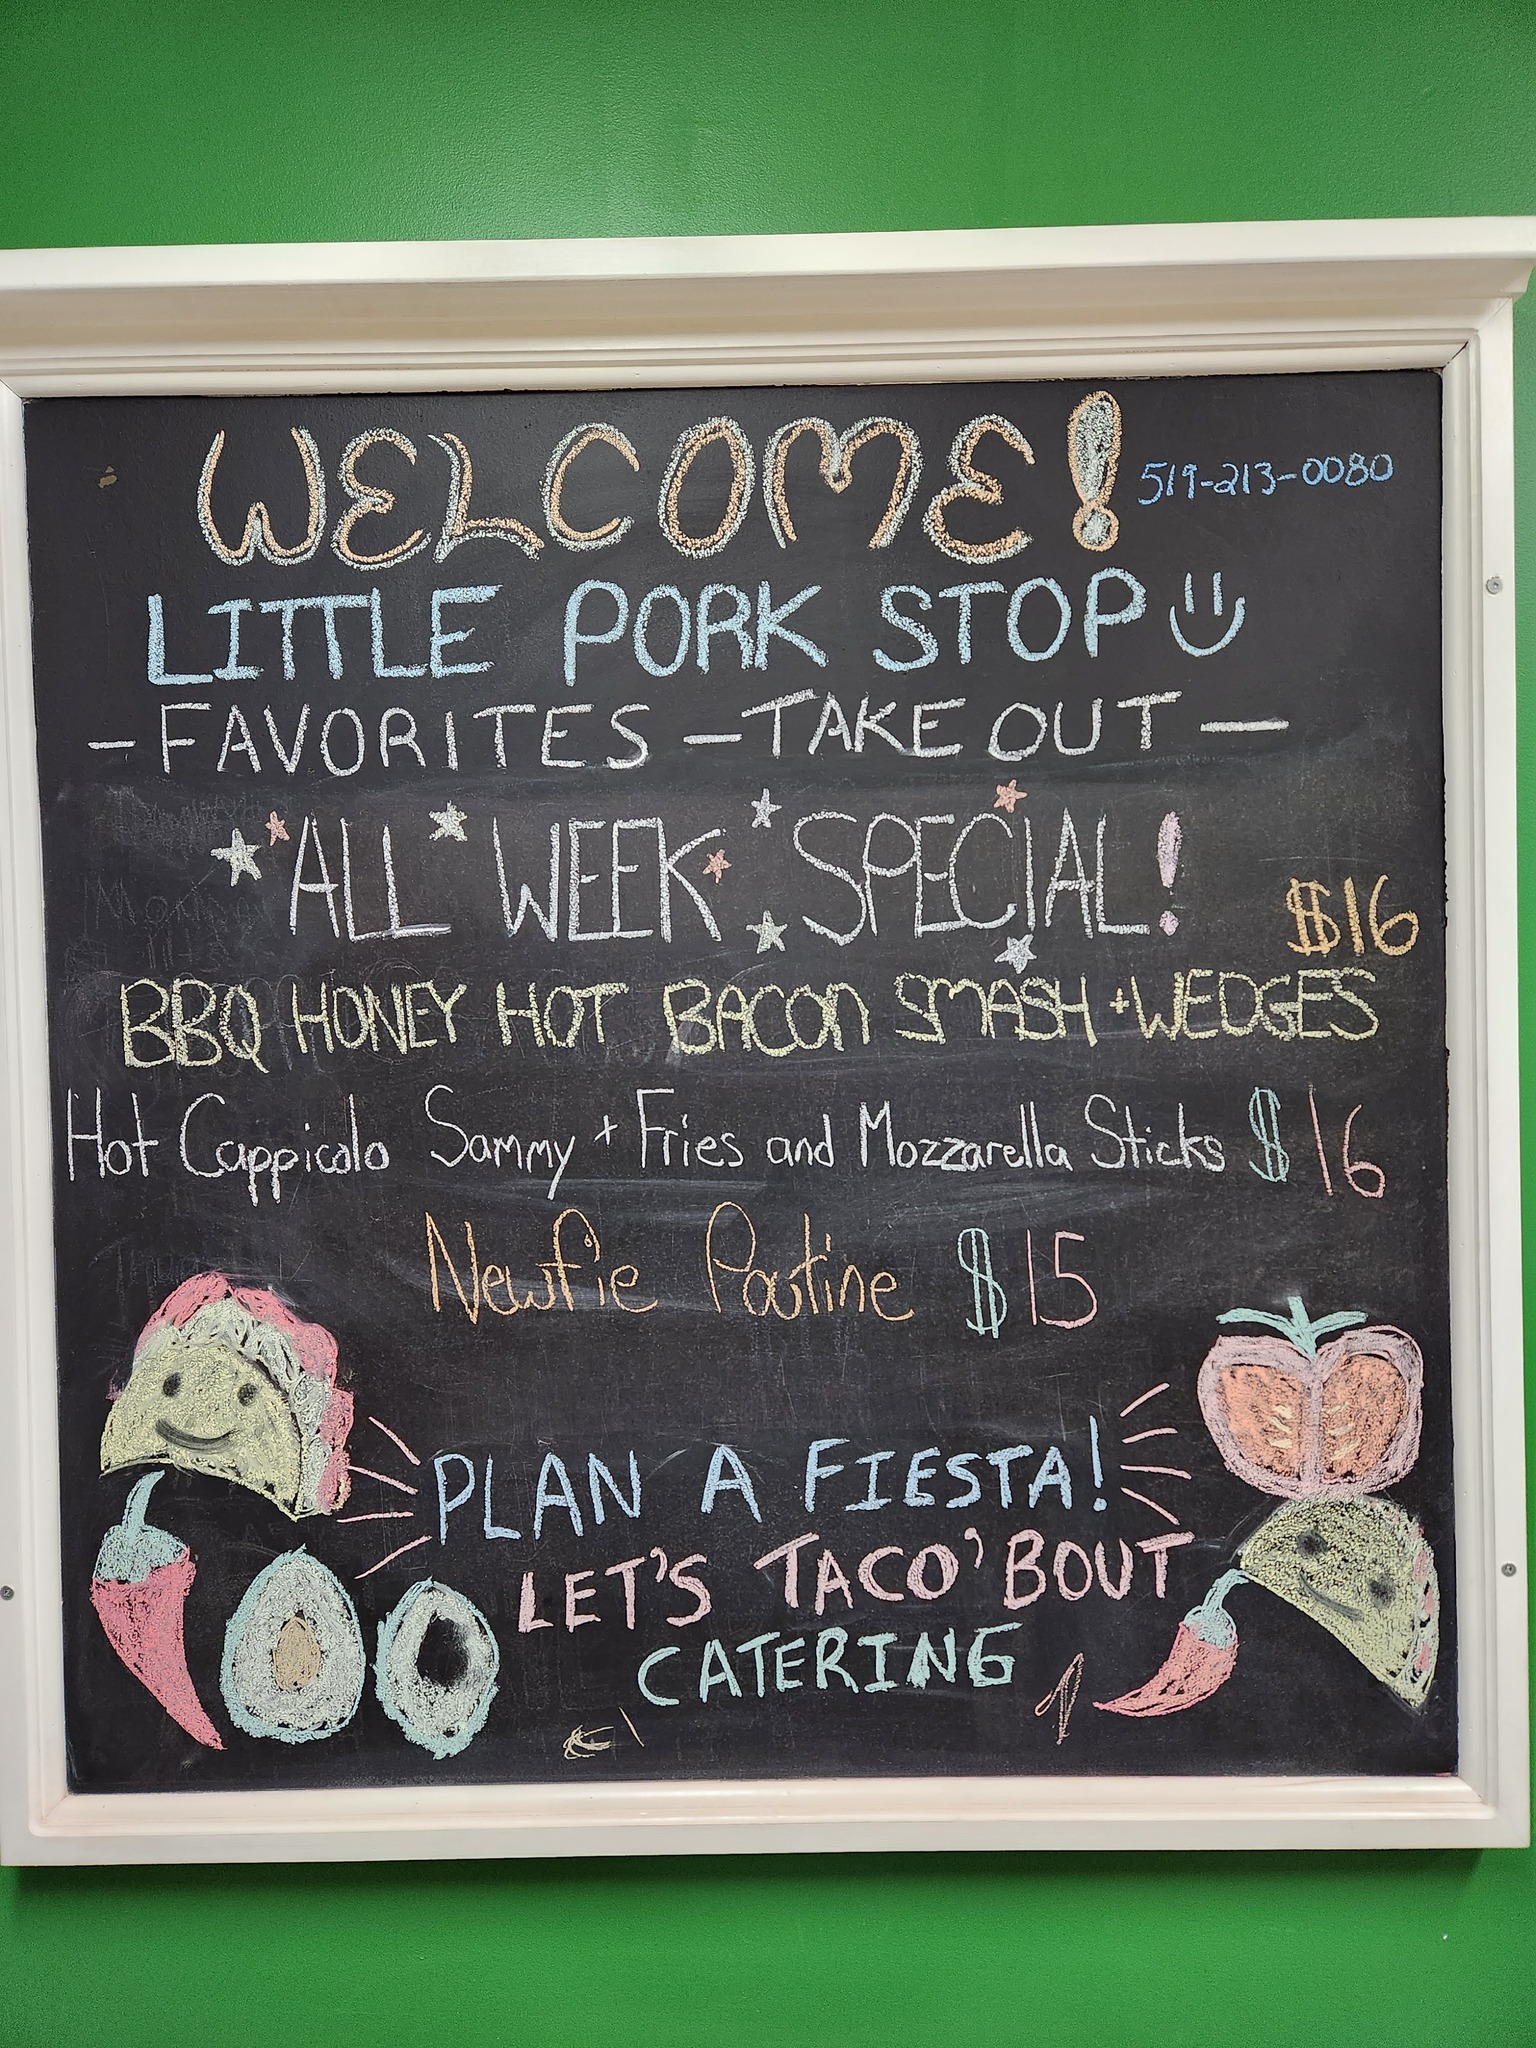 WELCOME!
519-213-0080
LITTLE PORK STOP
- FAVORITES - TAKE OUT -
ALL WEEK SPECIAL!
$16
BBQ HONEY HOT BACON SMASH + WEDGES
Hot Cappicolo Sammy + Fries and Mozzarella Sticks $16
Newfie Poutine $15
PLAN A FIESTA!
LET'S TACO' BOUT
CATERING